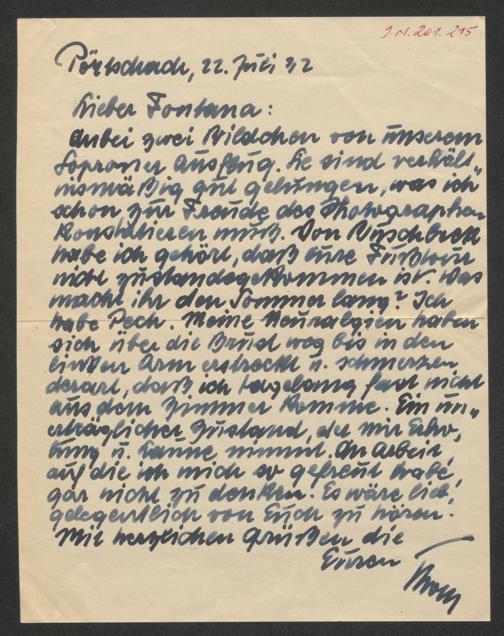 J.N. 201.215
Pörtschach, 22. Juli 32
Lieber Fontana:
Anbei zwei Bildchen von unserem
Soproner Ausflug. Sie sind verhält„
nismäßig gut gelungen, was ich
schon zur Freude des Photographen
konstatieren muß. Von
habe ich gehört, daß eure Fußtour
nicht zustandegekommen ist. Was
macht ihr den Sommer lang? Ich
habe Pech. Meine Neuralgien haben
sich über die Brust weg bis in den
linken Arm erstreckt u. schmerzen
derart, daß ich tagelang fast nicht
aus dem Zimmer komme. Ein un„
erträglicher Zustand, der mir Erho„
lung u. Laune nimmt. An Arbeit
auf die ich mich so gefreut habe,
gar nicht zu denken. Es wäre lieb,
gelegentlich von Euch zu hören.
Mit herzlichen Grüßen die
Euren